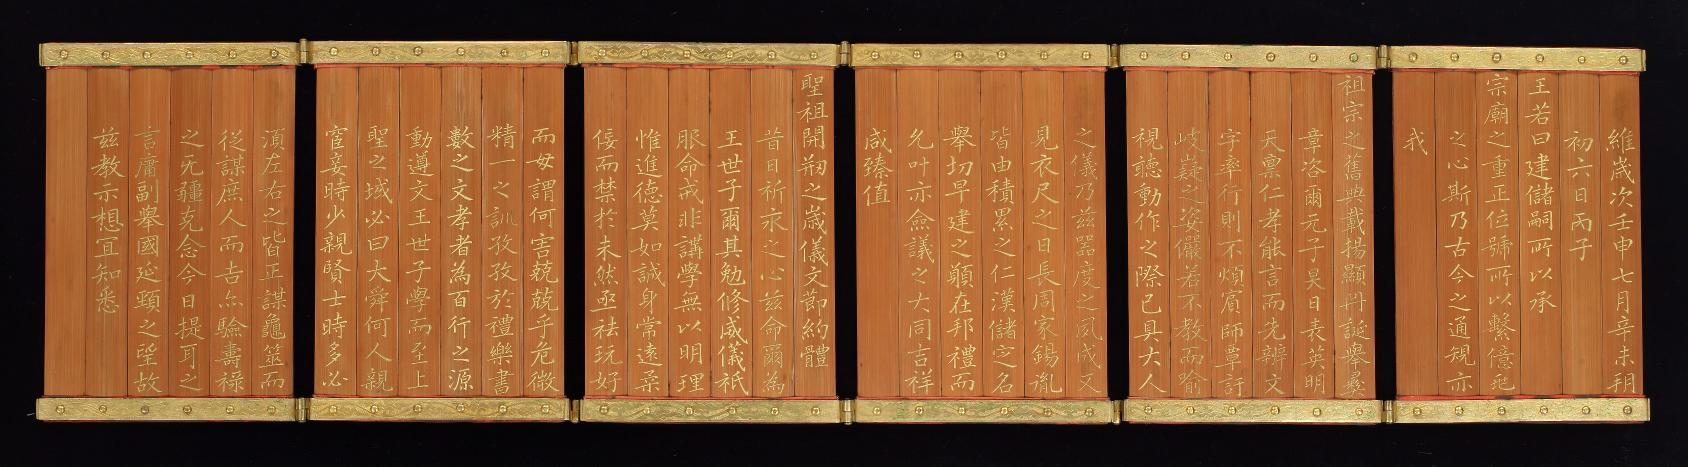 維歲次壬申七月辛未朔
初六日丙子
王若曰建儲嗣所以承
宗廟之重正位號所以繫億兆
之心斯乃古今之通規亦
我
祖宗之舊典載揚顯冊誕舉彝
章咨爾元子昊日表英明
天稟仁孝能言而先辨文
字率行則不煩賓師覃訏
岐嶷之姿儼若不教而喻
視聽動作之際已具大人
之儀乃玆器度之夙成又
見衣尺之日長周家錫胤
皆由積累之仁漢儲定名
舉切早建之顒在邦禮而
允叶亦僉議之大同吉祥
咸臻値
聖祖開刱之歲儀文節約體
昔日祈永之心玆命爾爲
王世子爾其勉修威儀祗
服命戒非講學無以明理
惟進德莫如誠身常遠柔
佞而禁於未然亟祛玩好
而毋謂何害兢兢乎危微
精一之訓孜孜於禮樂書
數之文孝者爲百行之源
動遵文王世子學而至上
聖之域必曰大舜何人親
宦妾時少親賢士時多必
須左右之皆正謀龜筮而
從謀庶人而吉尒驗壽祿
之无疆克念今日提耳之
言庸副舉國延頸之望故
玆敎示想宜知悉